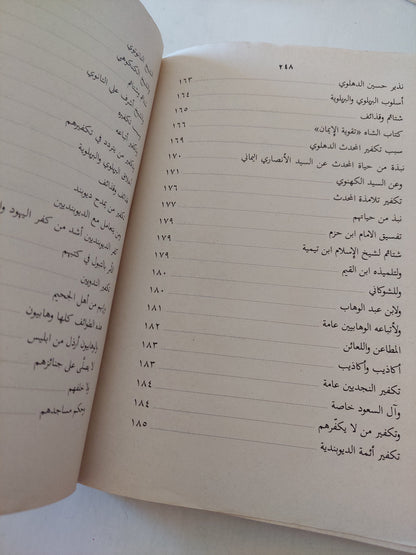 ٢٤٨
نذير حسين الدهلوي ١٦٣
أسلوب البريلوي والبريلوية ١٦٤
شتائم وقذائف ١٦٥
كتاب الشاه «تقوية الإيمان» ١٦٦
سبب تكفير المحدث الدهلوي ١٦٩
نبذة من حياة المحدث عن السيد الأنصاري اليماني ١٧٠
وعن السيد الكهنوي ١٧١
تكفير تلامذة المحدث ١٧٦
نبذ من حياتهم ١٧٧
تفسيق الامام ابن حزم ١٧٩
شتائم لشيخ الإسلام ابن تيمية ١٧٩
ولتلميذه ابن القيم ١٨٠
وللشوكاني ١٨٠
ولابن عبد الوهاب ١٨١
ولأتباعه الوهابيين عامة ١٨٢
المطاعن واللعائن ١٨٣
أكاذيب وأكاذيب ١٨٣
تكفير النجديين عامة ١٨٤
وآل السعود خاصة ١٨٤
وتكفير من لا يكفّرهم ١٨٥
تكفير أئمة الديوبندية
النانوتوي
الكنكوهي
أشرف علي الثانوي
وشتائم
تكفيره
أتباعه
من يتردد في تكفيرهم
البريلوي والبريلوية
وقذائف
من يمدح ديوبند
يتعامل مع الديوبنديين
الديوبنديين أشد من كفر اليهود
في كتبهم
تكفير الندويين
من أهل الجحيم
هذه الطوائف كلها وهابيون
أرذل من ابليس
يصلّى على جنائزهم
خلفهم
مساجدهم